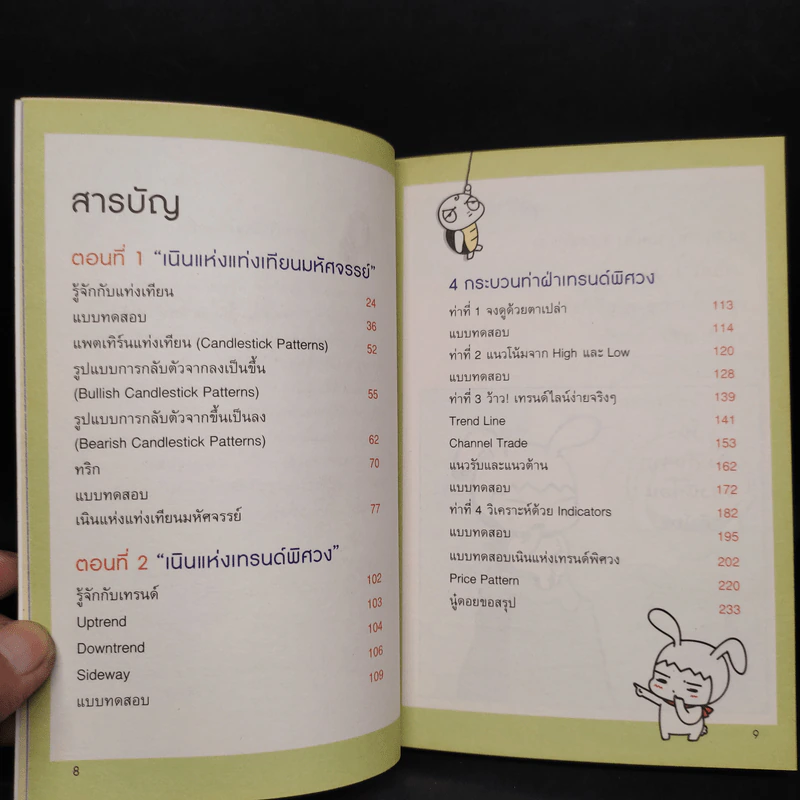 สารบัญ
ตอนที่ 1 “เนินแห่งแท่งเทียนมหัศจรรย์”
รู้จักกับแท่งเทียน 24
แบบทดสอบ 36
แพตเทิร์นแท่งเทียน (Candlestick Patterns) 52
รูปแบบการกลับตัวจากลงเป็นขึ้น
(Bullish Candlestick Patterns) 55
รูปแบบการกลับตัวจากขึ้นเป็นลง
(Bearish Candlestick Patterns) 62
ทริก 70
แบบทดสอบ
เนินแห่งแท่งเทียนมหัศจรรย์ 77
ตอนที่ 2 “เนินแห่งเทรนด์พิศวง”
รู้จักกับเทรนด์ 102
Uptrend 103
Downtrend 104
Sideway 106
แบบทดสอบ 109
8
4 กระบวนท่าฝ่าเทรนด์พิศวง
ท่าที่ 1 จงดูด้วยตาเปล่า 113
แบบทดสอบ 114
ท่าที่ 2 แนวโน้มจาก High และ Low 120
แบบทดสอบ 128
ท่าที่ 3 ว้าว! เทรนด์ไลน์ง่ายจริงๆ 139
Trend Line 141
Channel Trade 153
แนวรับและแนวต้าน 162
แบบทดสอบ 172
ท่าที่ 4 วิเคราะห์ด้วย Indicators 182
แบบทดสอบ 195
แบบทดสอบเนินแห่งเทรนด์พิศวง 202
Price Pattern 220
นู๋ดอยขอสรุป 233
9